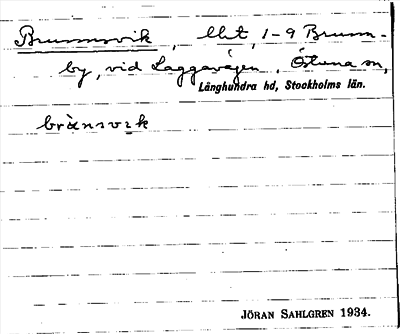 Brunnsvik, lht, 1-9 Brunn-
by, vid Laggavägen, Östuna sn,
Långhundra hd, Stockholms län.
brànsvɩk
JÖRAN SAHLGREN 1934.